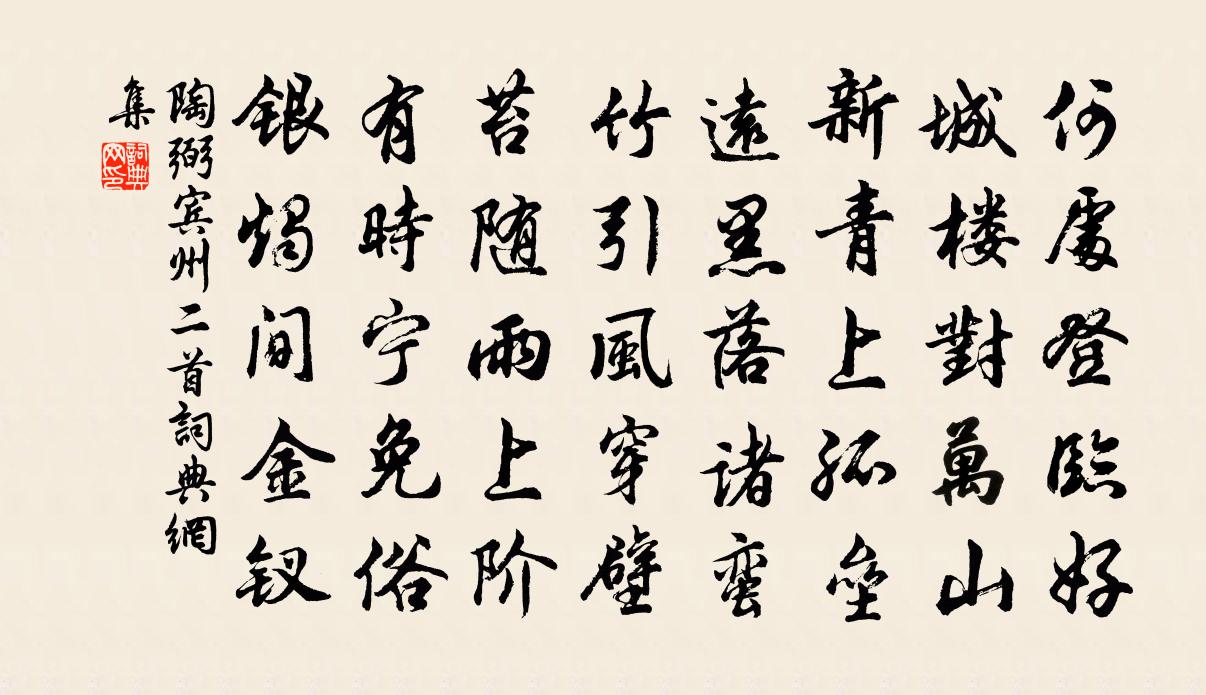 何處登臨好
城楼對萬山
新青上孤壘
遠黑落诸蛮
竹引風穿壁
苔随雨上阶
有時宁免俗
銀燭间金钗
陶弼宾州二首詞典網
集
詞典網印